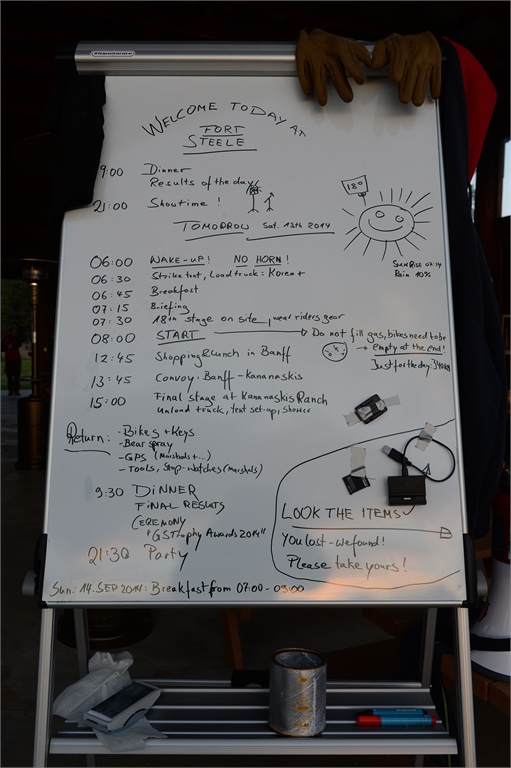 WELCOME TODAY AT
FORT
STEELE
9:00 Dinner
Results of the day
21:00 Showtime!
TOMORROW Sat. 13th 2014
18°
Sun Rise 07:14
Rain 10%
06:00 WAKE-UP! NO HORN!
06:30 Strike tent, Load truck: Korea +
06:45 Breakfast
07:15 Briefing
07:30 18th stage on site, wear riders gear
08:00 START → Do not fill gas, bikes need to be
→ empty at the end!
12:45 Shopping & Lunch in Banff
Just for the day: 340km
13:45 Convoy: Banff - Kananaskis
15:00 Final stage at Kananaskis Ranch
Unload truck, tent set-up, shower
Return: - Bikes + Keys
- Bear spray
- GPS (Marshals + ...)
- Tools, Stop-watches (Marshals)
9:30 DINNER
FINAL RESULTS
CEREMONY
"GS Trophy Awards 2014"
21:30 Party
LOOK THE ITEMS
You lost - we found!
Please take yours!
Sun. 14. SEP 2014: Breakfast from 07:00 - 09:00